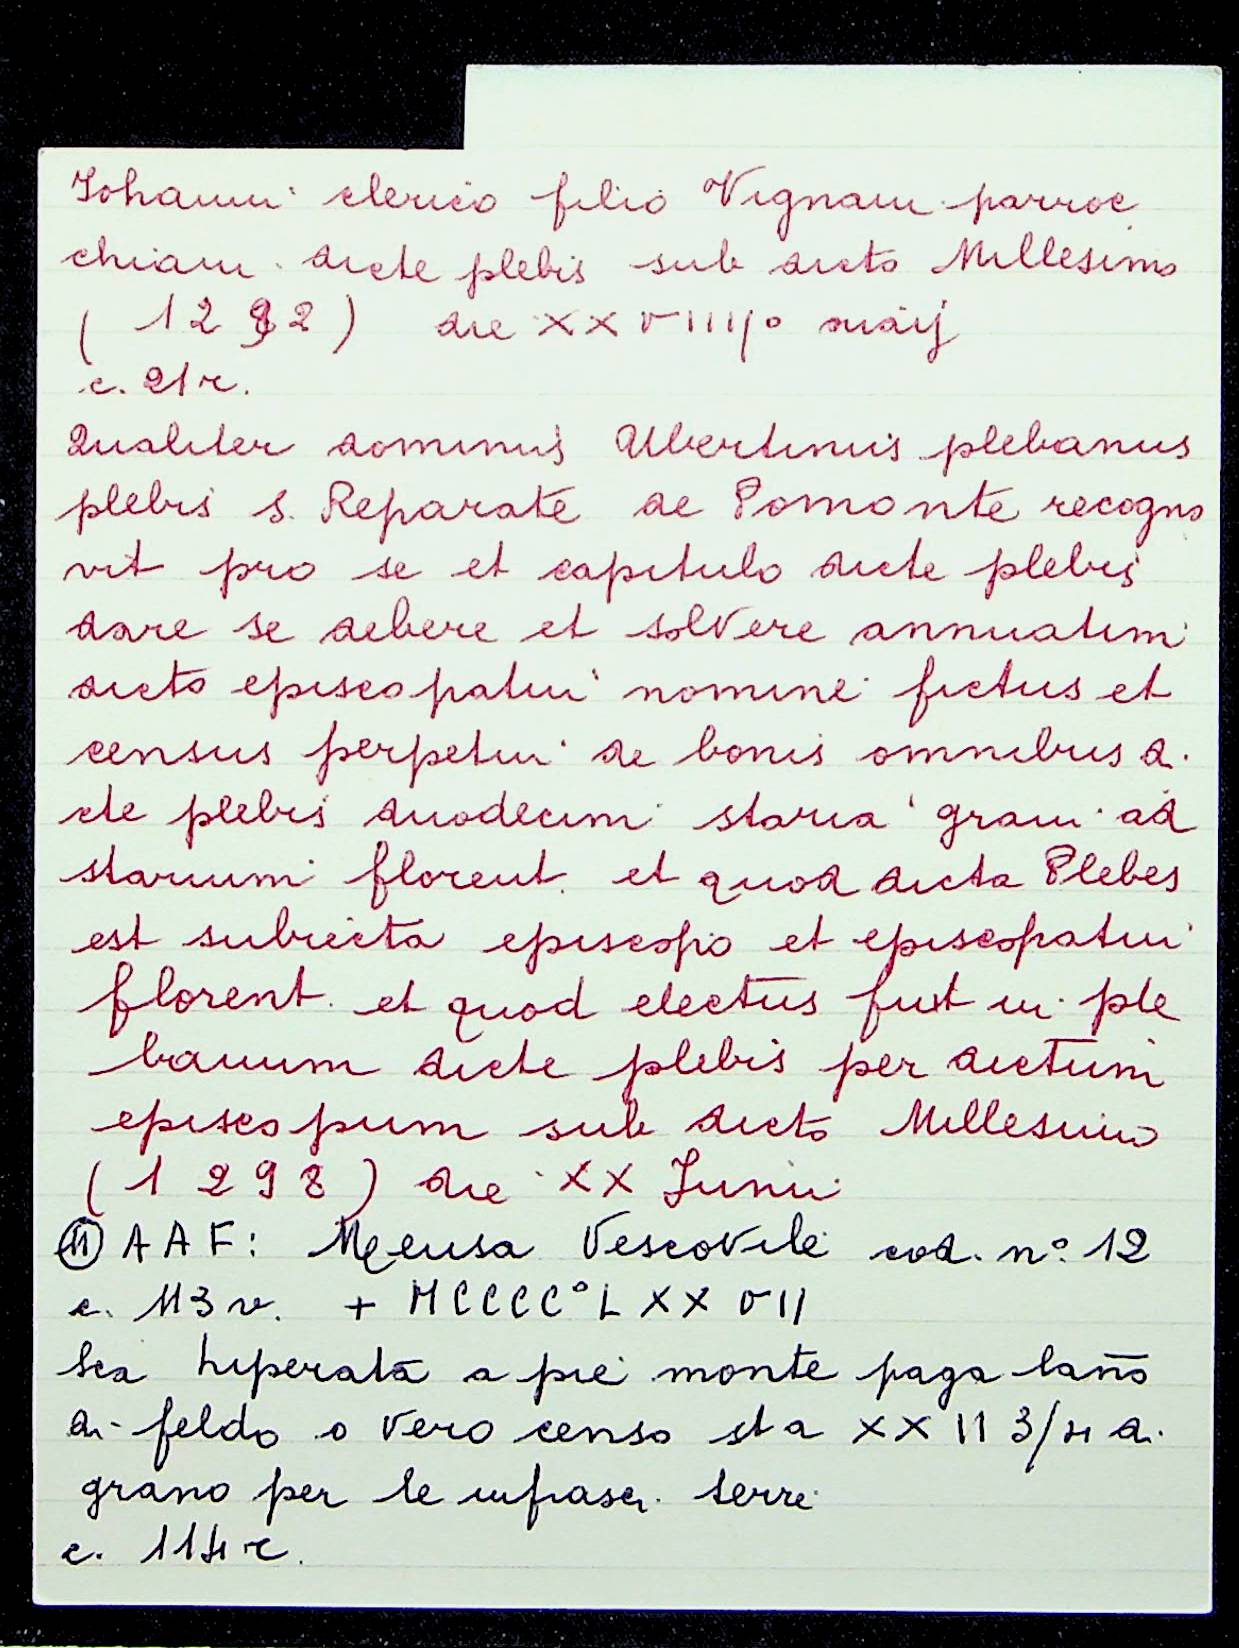 Iohanni clerico filio Vignani parroc
chiani dicte plebis sub dicto Millesimo
(1292) die XXVIIII° maij
c. 21 r.
Qualiter dominus Ubertinus plebanus
plebis S. Reparate de Pomonte recogno
vit pro se et capitulo dicte plebis
dare se debere et solvere annuatim
dicto episcopatui nomine fictus et
census perpetui de bonis omnibus di
cte plebis duodecim staria grani ad
starium florent. et quod dicta Plebes
est subiecta episcopo et episcopatui
florent. et quod electus fuit in ple
banum dicte plebis per dictum
episcopum sub dicto Millesimo
(1298) die XX Junii
(11) AAF: Mensa Vescovile cod. n° 12
c. 113 v. + MCCCC°LXXVII
Sca Liperata a pie monte paga lano
di feldo o vero censo sta XXII 3/4 di
grano per le infrascr. terre
c. 114 r.